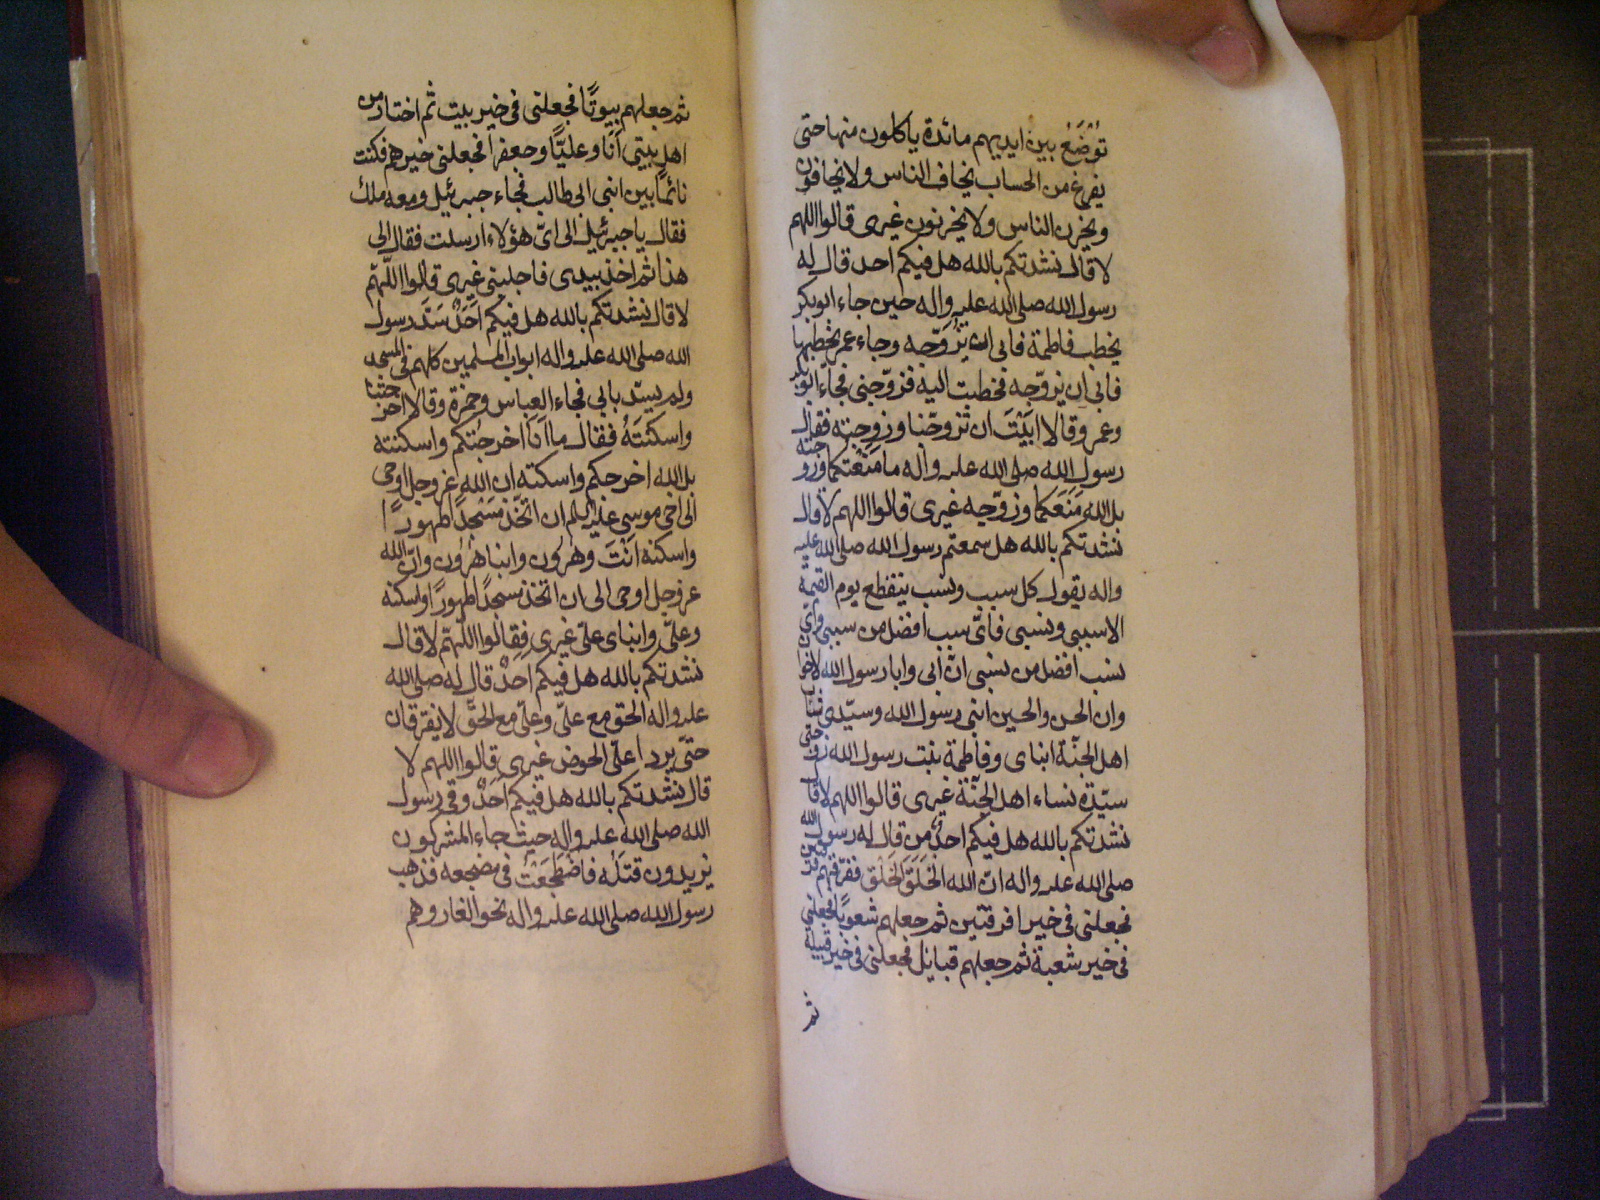 تُوْضَعُ بين ايديهم مائدة ياكلون منها حتى
يفرغ من الحساب يخاف الناس ولا يخافون
ويحزن الناس ولا يحزنون غيرى قالوا اللهم
لا قال نشدتكم بالله هل فيكم احد قال له
رسول الله صلى الله عليه واله حين جاء ابو بكر
يخطب فاطمة فابى ان يُزَوّجه وجاء عمر يخطبها
فابى ان يزوّجه فخطبت اليه فزوّجنى فجاء ابو بكر
وعمر وقالا ابَيْتَ ان تزوّجنا وزوجته فقال
رسول الله صلى الله عليه واله ما مَنَعْتكما وزوجته
بل الله مَنَعَكما وزوّجه غيرى قالوا اللهم لا قال
نشدتكم بالله هل سمعتم رسول الله صلى الله عليه
واله يقول كل سبب ونسب ينقطع يوم القيمة
الا سببى ونسبى فاىّ سبب افضل من سببى واىّ
نسب افضل من نسبى انّ ابى وابا رسول الله لاخوان
وان الحسن والحسين ابنى رسول الله وسيّدى شباب
اهل الجنّة ابناى وفاطمة بنت رسول الله زوجتى
سيّدة نساء اهل الجنّة غيرى قالوا اللهم لا قال
نشدتكم بالله هل فيكم احدٌ من قال له رسول الله
صلى الله عليه واله انّ الله خَلَقَ الخَلْق ففرّقهم فرقتين
فجعلنى فى خير الفرقتين ثم جعلهم شعوبًا فجعلنى
فى خير شعبة ثم جعلهم قبايل فجعلنى فى خير قبيلة
ثم
ثم جعلهم بيوتًا فجعلنى فى خير بيت ثم اختار من
اهل بيتى اَنَا وعليّا وجعفرا فجعلنى خيرهم فكنت
نائمًا بين ابنى ابى طالب فجاء جبرئيل ومعه ملك
فقال يا جبرئيل الى اىّ هؤلاء ارسلت فقال الى
هذا ثم اخذ بيدى فاجلسنى غيرى قالوا اللّهمّ
لا قال نشدتكم بالله هل فيكم اَحَدٌ سَدَّ رسول
الله صلى الله عليه واله ابواب المسلمين كلهم فى المسجد
ولم يسدّ بابى فجاء العباس وحمزة وقالا اخرجتنا
واسكَنْتَهُ فقال ما اَنَا اخرجتكم واسكنته
بل الله اخرجكم واسكنه ان الله عز وجل اوحى
الى اخى موسى عليه السلم ان اتخّذ مَسْجدًا طهورًا
واسكنه انْتَ وهرون وابنا هرُون وانّ الله
عز وجل اوحى الى ان اتخذ مسجدًا طهورًا واسكنه
وعلىّ وابناى علىّ غيرى فقالوا اللّهمّ لا قال
نشدتكم بالله هل فيكم احدٌ قال له صلى الله
عليه واله الحق مع علىّ وعلىّ مع الحقّ لا يفترقان
حتىّ يردا علىّ الحوض غيرى قالوا اللهم لا
قال نشدتكم بالله هل فيكم اَحَدٌ وقى رسول
الله صلى الله عليه واله حيث جاء المشركون
يريدون قتلَه فاضْطَجَعْتُ فى مضجعه فذهب
رسول الله صلى الله عليه واله نحو الغار وهم